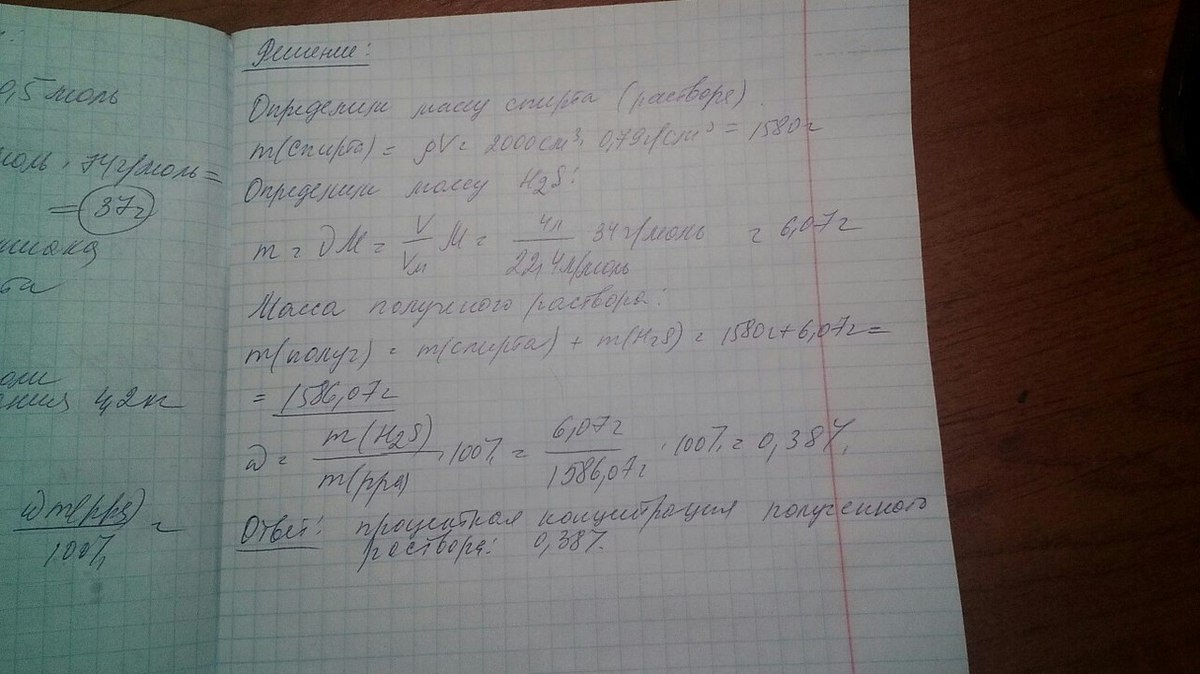 0,5 моль
моль · 74г/моль =
= 37г
миака
та
оли
ания 4,2 кг
ω m(рра) =
100%
Решение:
Определим массу спирта (раствора)
m(спирта) = ρV = 2000см³ · 0,79г/см³ = 1580г
Определим массу H₂S:
m = νM = V/Vм M = 4л/22,4л/моль 34г/моль = 6,07г
Масса полученого раствора:
m(получ) = m(спирта) + m(H₂S) = 1580г + 6,07г =
= 1586,07г
ω = m(H₂S)/m(рра) · 100% = 6,07г/1586,07г · 100% = 0,38%
Ответ: процентная концитрация полученного
раствора: 0,38%.